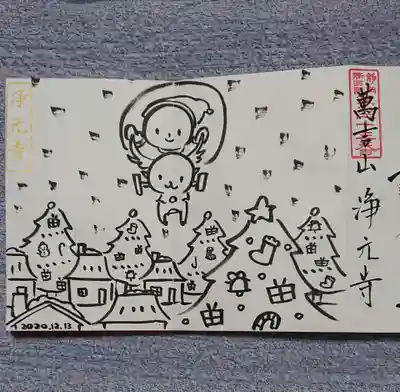 萬吉山浄元寺
浄元寺
2020.12.13